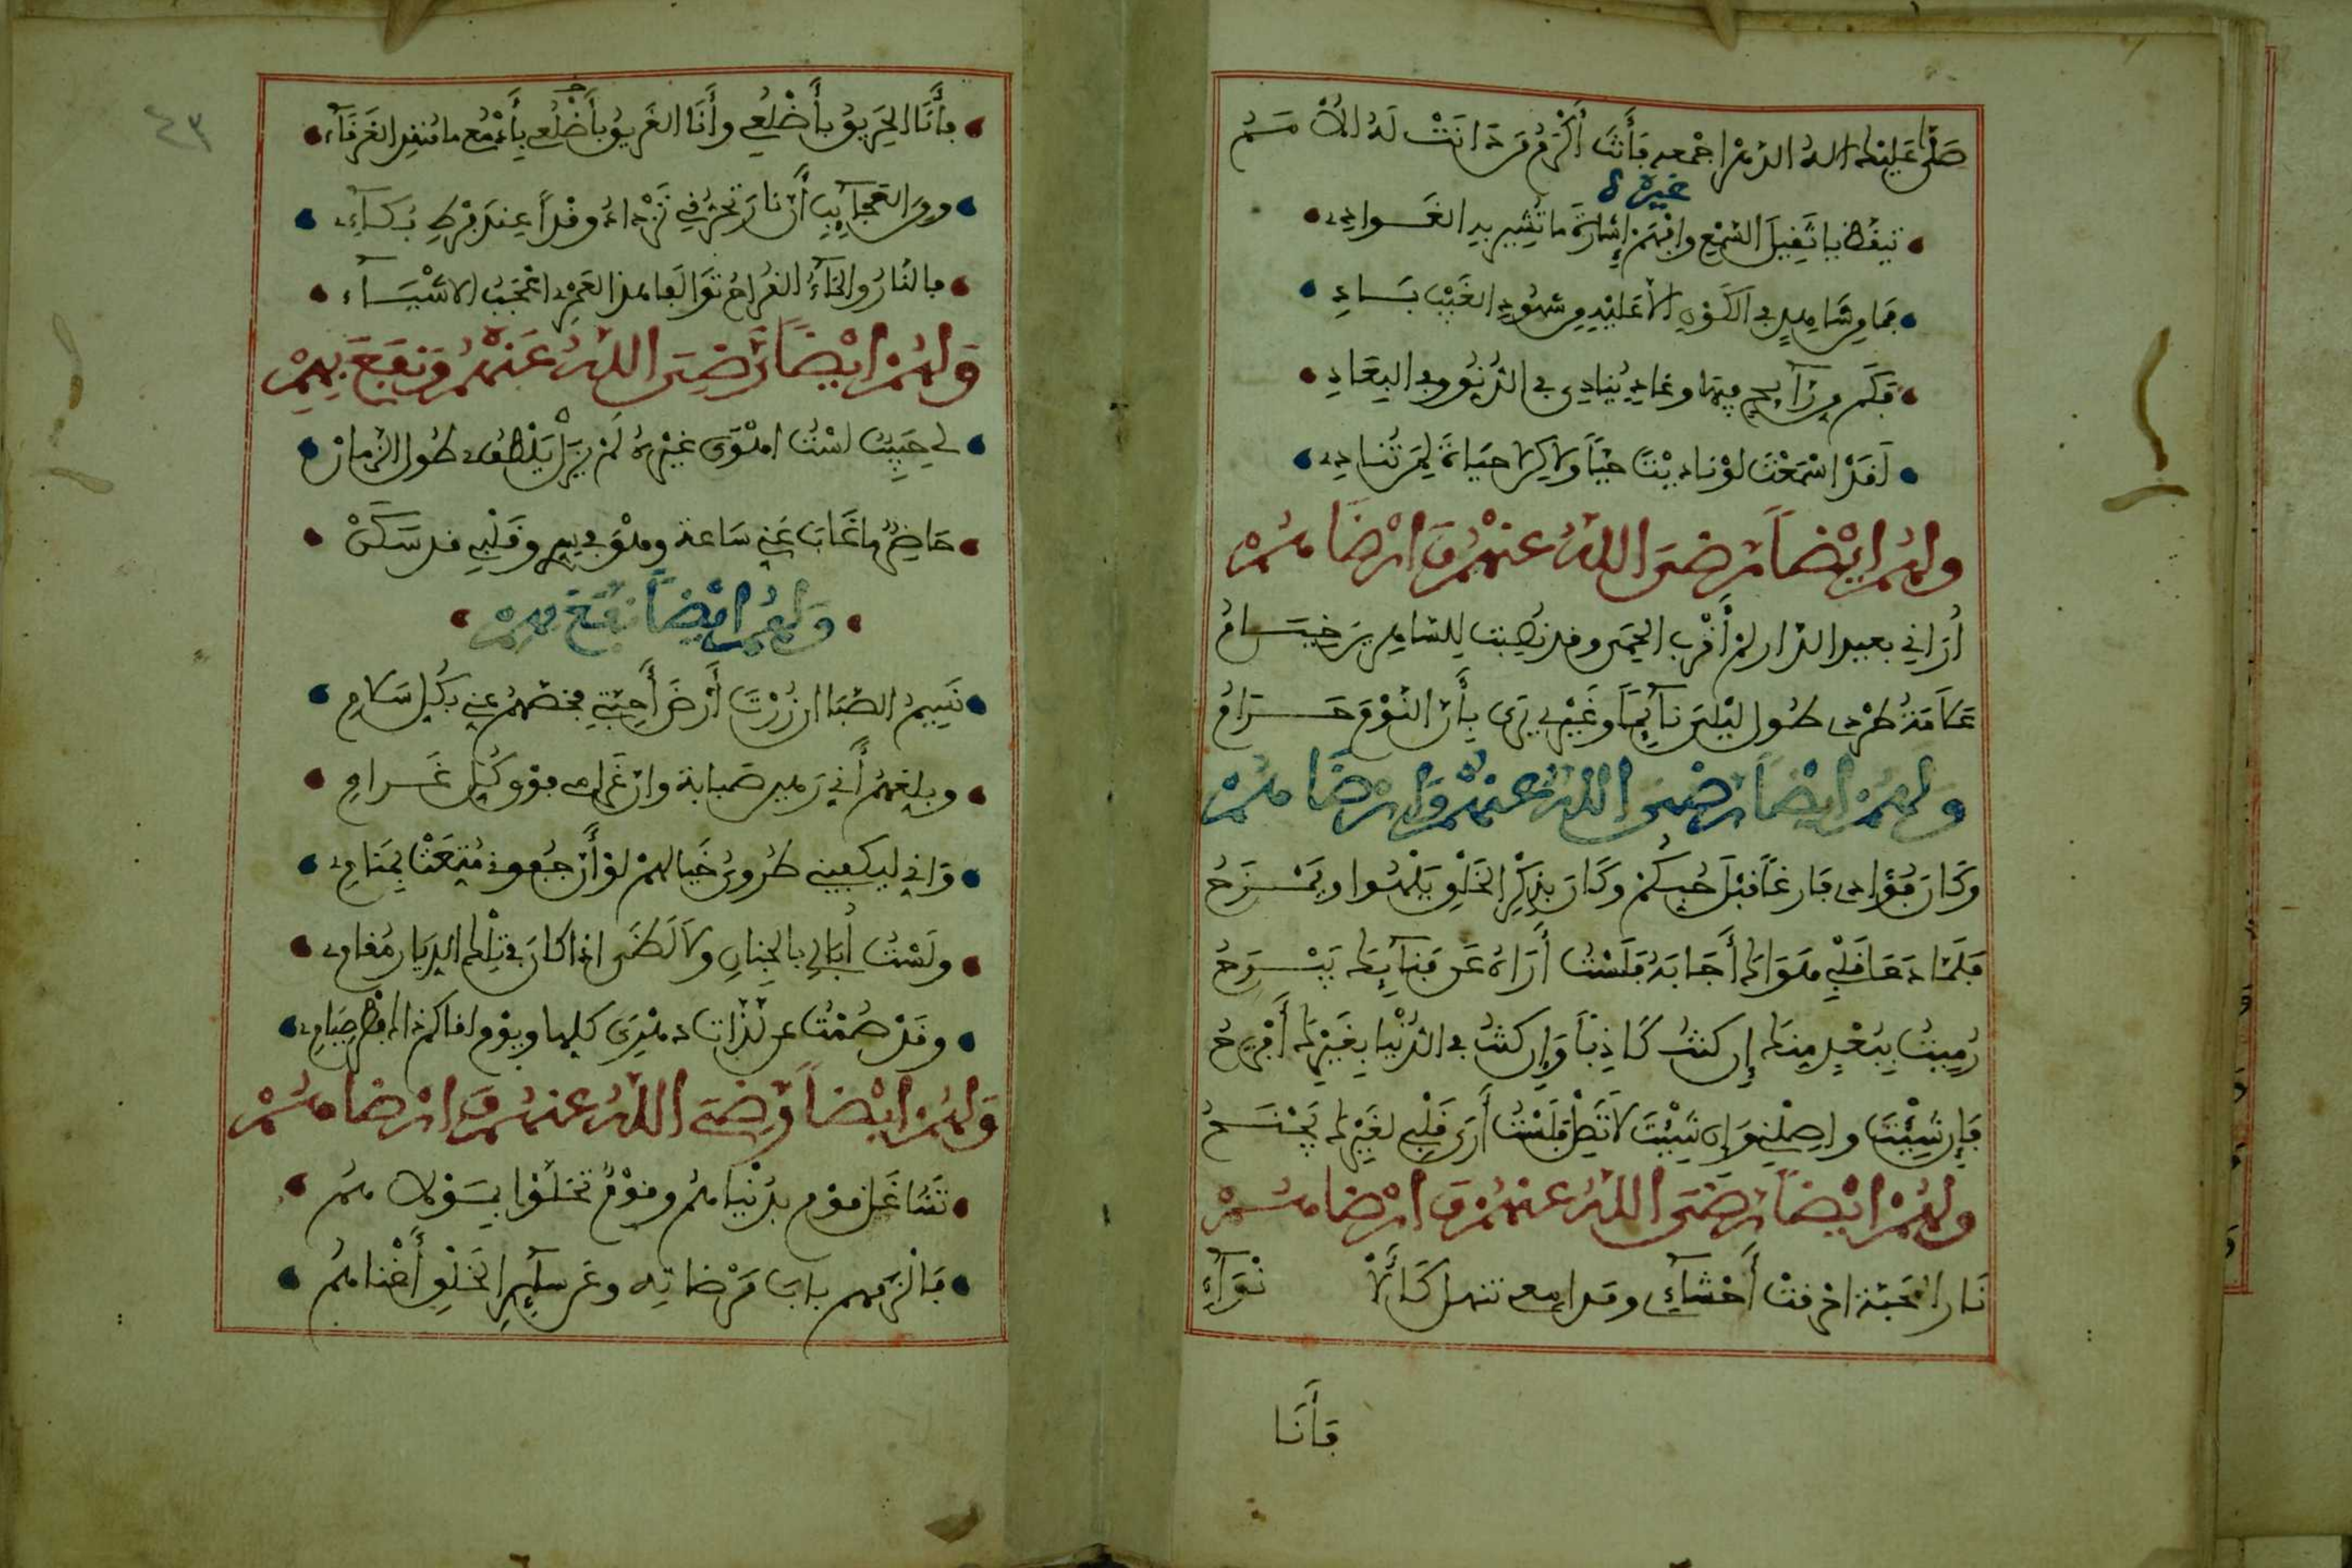 صَلَّى عَلَيْكَ اللهُ الدَّهْرَ اجْمعه فَأَنْتَ أَكْرَمُ مَن دَانَتْ لَهُ الأُمَمُ
غيره
تيقظ يا ثَقِيلَ السَّمْعِ وافْهَمْ إِشَارَةَ ما تُشِير بهِ الغَوادِي
فَمَا مِن شَاهِدٍ في الكَوْنِ إلاَّ عَلَيْهِ مِن شُهُودِ الغَيْبِ بَادِ
فَكَم مِن رَآيِحٍ فِيهَا وغَادٍ يُنادِي في الدُّنُوِّ وفي البِعَادِ
لَقَدْ اسْمَعْتَ لَوْ نَادَيْتَ حَيّاً ولاَكِن لا حيَاةَ لِمَن تُنَادِي
ولهُمْ ايْضاً رَضِىَ اللهُ عنهُمْ وَارْضَاهُمْ
أرَانِي بعيد الدَّار لمْ أَقْرَبِ الحِمَى وقد نُصِبت لِلسَّاهِرِينَ خِيَامُ
عَلاَمَةُ طَرْدِي طُول لَيْلِىَ نَآيِماً وغَيْرِي يَرَى بِأَنَّ النَّوْمَ حَرَامُ
ولهُمْ ايضاً رَضِىَ اللهُ عنهُمْ وَارْضَاهُمْ
وكَانَ فُؤَادِي فَارِغاً قَبْلَ حُبِّكُمْ وكَانَ بِذِكْرِ الخَلْقِ يَلْهُوا ويَمْزَحُ
فَلَمَّا دَعَا قَلْبِي هَوَاكَ أَجَابَهُ فَلَسْتُ أَرَاهُ عَن فِنَآيِكَ يَبْرَحُ
رُمِيتُ بِبُعْدٍ مِنكَ إِن كنتُ كَاذِباً وَإِن كنتُ في الدُّنْيَا بِغَيْرِكَ أَفْرَحُ
فَإِن شِئْتَ واصِلْنِي وَإِن شِئْتَ لاَ تَصِلْ فَلَسْتُ أَرَى قَلْبِي لغَيْرِكَ يَجْنَحُ
ولهُمْ ايْضاً رَضِىَ اللهُ عنهُمْ وَارْضَاهُمْ
نَار المَحَبَّة احْرقتْ أَحْشَآيِي ومَدامِعي تنهل كَالأَنْوَآءِ
فَأَنَا
فَأَنَا الحَرِيقُ بأَضْلُعِي وأَنَا الغَرِيقُ بأَدْمُعِي يا مُنقِذ الغَرَقَآءِ
ومِنَ العَجَآيِبِ أنَّ نَارَ تَحَرُّقِي تَزْدَادُ وقْداً عِندَ فَرْطِ بُكَآءِي
فالنَّارُ والمَآءُ القُرَاحُ تَوَالَفَا هذا لعَمْرِي اعْجَبُ الاشْيَآءِ
وَلهُمْ ايْضاً رَضِىَ اللهُ عَنْهُمْ وَنفَعَ بِهِمْ
لِي حَبِيبٌ لسْتُ اهْوَى غيْرَهُ لَمْ يَزَلْ يَلْطُف طُول الزَّمانْ
حَاضِرٌ ما غَابَ عَنِّي سَاعة وهْوَ في سِرِّي وقَلْبِي قد سَكَنْ
وَلهُمْ ايْضاً نفَعَ بِهِمْ
نَسِيمُ الصَّبَا ان زُرْتَ أَرْضَ أَحِبَّتِي فخُصّهُمُ عنِي بكُلِّ سَلامِ
وبلغهُمْ أَنِّي رَهِين صَبابة وانَّ غَرَامِي فوق كُلِّ غَرَامِ
وَإنِّي ليكفيني طُرُوقُ خَيَالهمْ لَوْ أَنَّ جُفُونِي مُتِّعَتْ بِمَنَامِي
ولَسْتُ أُبَالِي بالجِنَانِ ولاَ لَظَى اذا كان في تِلْكَ الدِّيَار مُقامِي
وقَدْ صُمْتُ عن لَذَّات دهْرِيَ كلِّها ويوْم لقاكمْ ذاك فِطْر صِيَامِي
وَلهُمْ ايْضاً رَضِىَ اللهُ عنهُمْ وَارْضَاهُمْ
تَشَاغَل قوْم بِدُنْيَاهُمْ وقوْمٌ تَخَلَّوْا بِمَوْلاهُمُ
فَالْزَمهم بابَ مَرْضَاتِه وعَن سَآيِرِ الخَلْقِ أَغْنَاهُمُ
٤٣